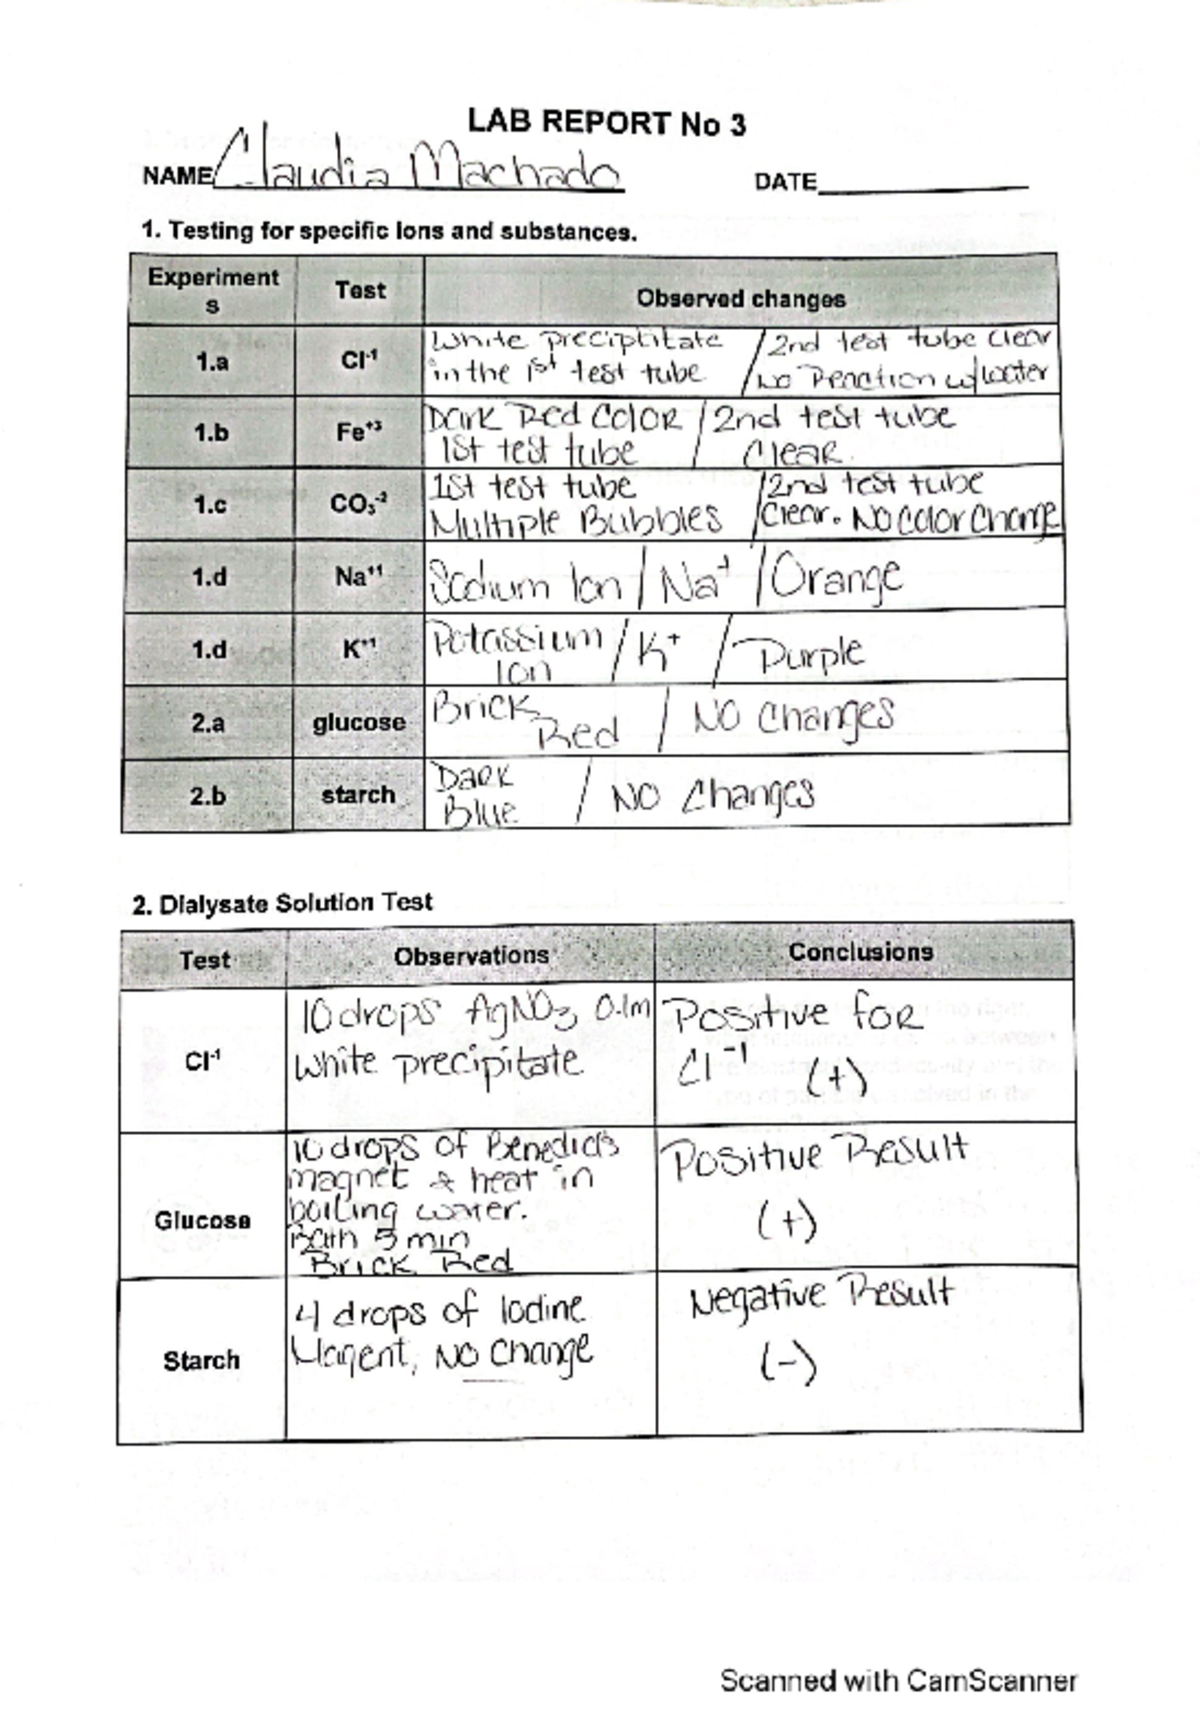 LAB REPORT No 3
NAME Claudia Machado DATE
1. Testing for specific ions and substances.
Experiment
s
Test
Observed changes
1.a
Cl-1
White preciptitate
in the 1st test tube
/ 2nd test tube clear
/ No Reaction w/water
1.b
Fe+3
Dark Red Color / 2nd test tube
1st test tube / Clear.
1.c
CO3-2
1st test tube / 2nd test tube
Multiple Bubbles / Clear. No Color Change
1.d
Na+1
Sodium Ion / Na+ / Orange
1.d
K+1
Potassium
Ion
/ K+ / Purple
2.a
glucose
Brick
Red
/ No Changes
2.b
starch
Dark
Blue
/ No Changes
2. Dialysate Solution Test
Test
Observations
Conclusions
Cl-1
10 drops AgNO3 0.1m
White precipitate
Positive for
Cl-1 (+)
Glucose
10 drops of Benedict's
magnet & heat in
boiling water.
Bath 5 min
Brick Red
Positive Result
(+)
Starch
4 drops of Iodine
No Change
Negative Result
(-)
Scanned with CamScanner